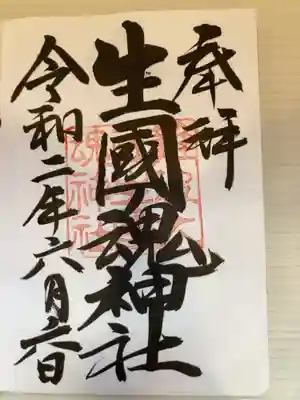 奉拝
生國魂神社
令和二年六月六日